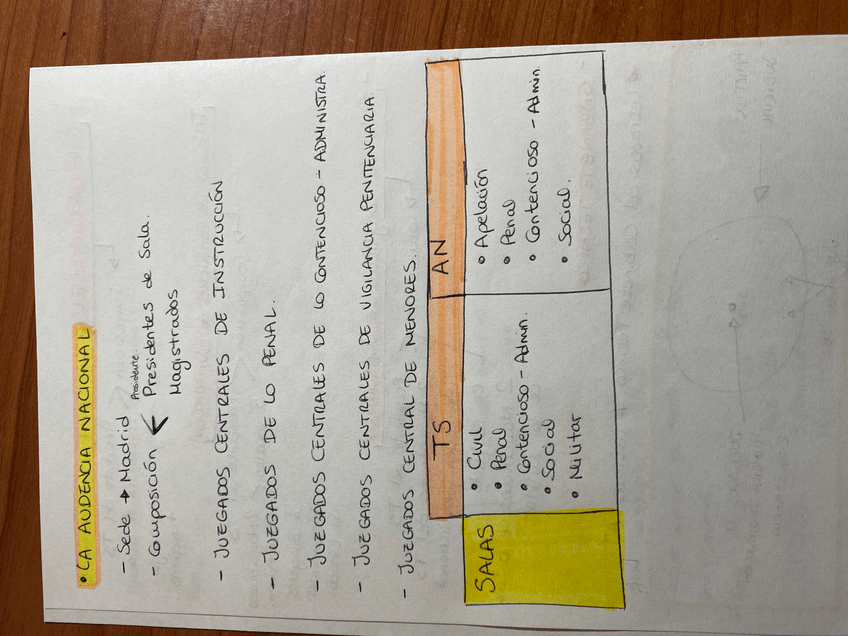 • LA AUDENCIA NACIONAL
- Sede → Madrid
Presidente.
- Composición < Presidentes de Sala.
Magistrados
- JUZGADOS CENTRALES DE INSTRUCCIÓN
- JUZGADOS DE LO PENAL.
- JUZGADOS CENTRALES DE LO CONTENCIOSO - ADMINISTRA.
- JUZGADOS CENTRALES DE VIGILANCIA PENITENCIARIA
- JUZGADOS CENTRAL DE MENORES.
TS AN
SALAS
• Civil
• Penal
• Contencioso - Admin.
• Social
• Militar
• Apelación
• Penal
• Contencioso - Admin.
• Social.